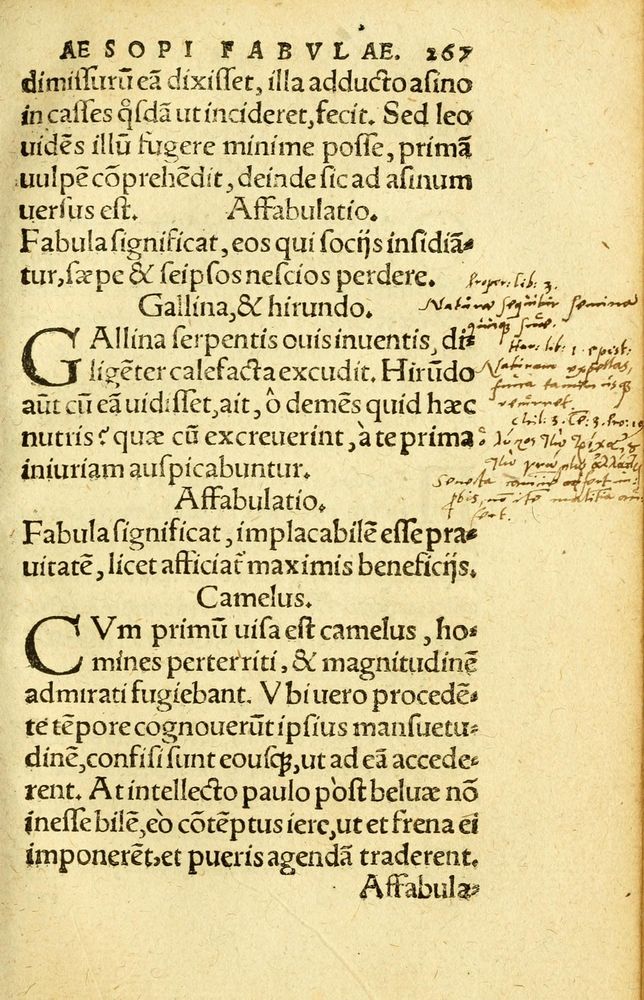 AESOPI FABVLAE. 267
dimissurũ eã dixisset, illa adducto asino
in casses q̃sdã ut incideret, fecit. Sed leo
uidẽs illũ fugere minime posse, primã
uulpẽ cõprehẽdit, deinde sic ad asinum
uersus est. Affabulatio.
Fabula significat, eos qui socijs insidiã-
tur, sæpe & seipsos nescios perdere.
Gallina, & hirundo.
GAllina serpentis ouis inuentis, di-
ligẽter calefacta excudit. Hirũdo
aũt cũ eã uidisset, ait, ô demẽs quid hæc
nutris? quæ cũ excreuerint, à te prima
iniuriam auspicabuntur.
Affabulatio.
Fabula significat, implacabilẽ esse pra-
uitatẽ, licet afficiat᷑ maximis beneficijs.
Camelus.
CVm primũ uisa est camelus, ho-
mines perterriti, & magnitudinẽ
admirati fugiebant. Vbi uero procedẽ-
te tẽpore cognouerũt ipsius mansuetu-
dinẽ, confisi sunt eousq;, ut ad eã accede-
rent. At intellecto paulo pòst beluæ nõ
inesse bilẽ, eò cõtẽptus iere, ut et frena ei
imponerẽt, et pueris agendã traderent.
Affabula-
Proper. lib. 3.
Naturae sequitur semina
quisque suae.
Hor. lib. 1. epist.
Naturam expellas
furca tamen usque
recurret.